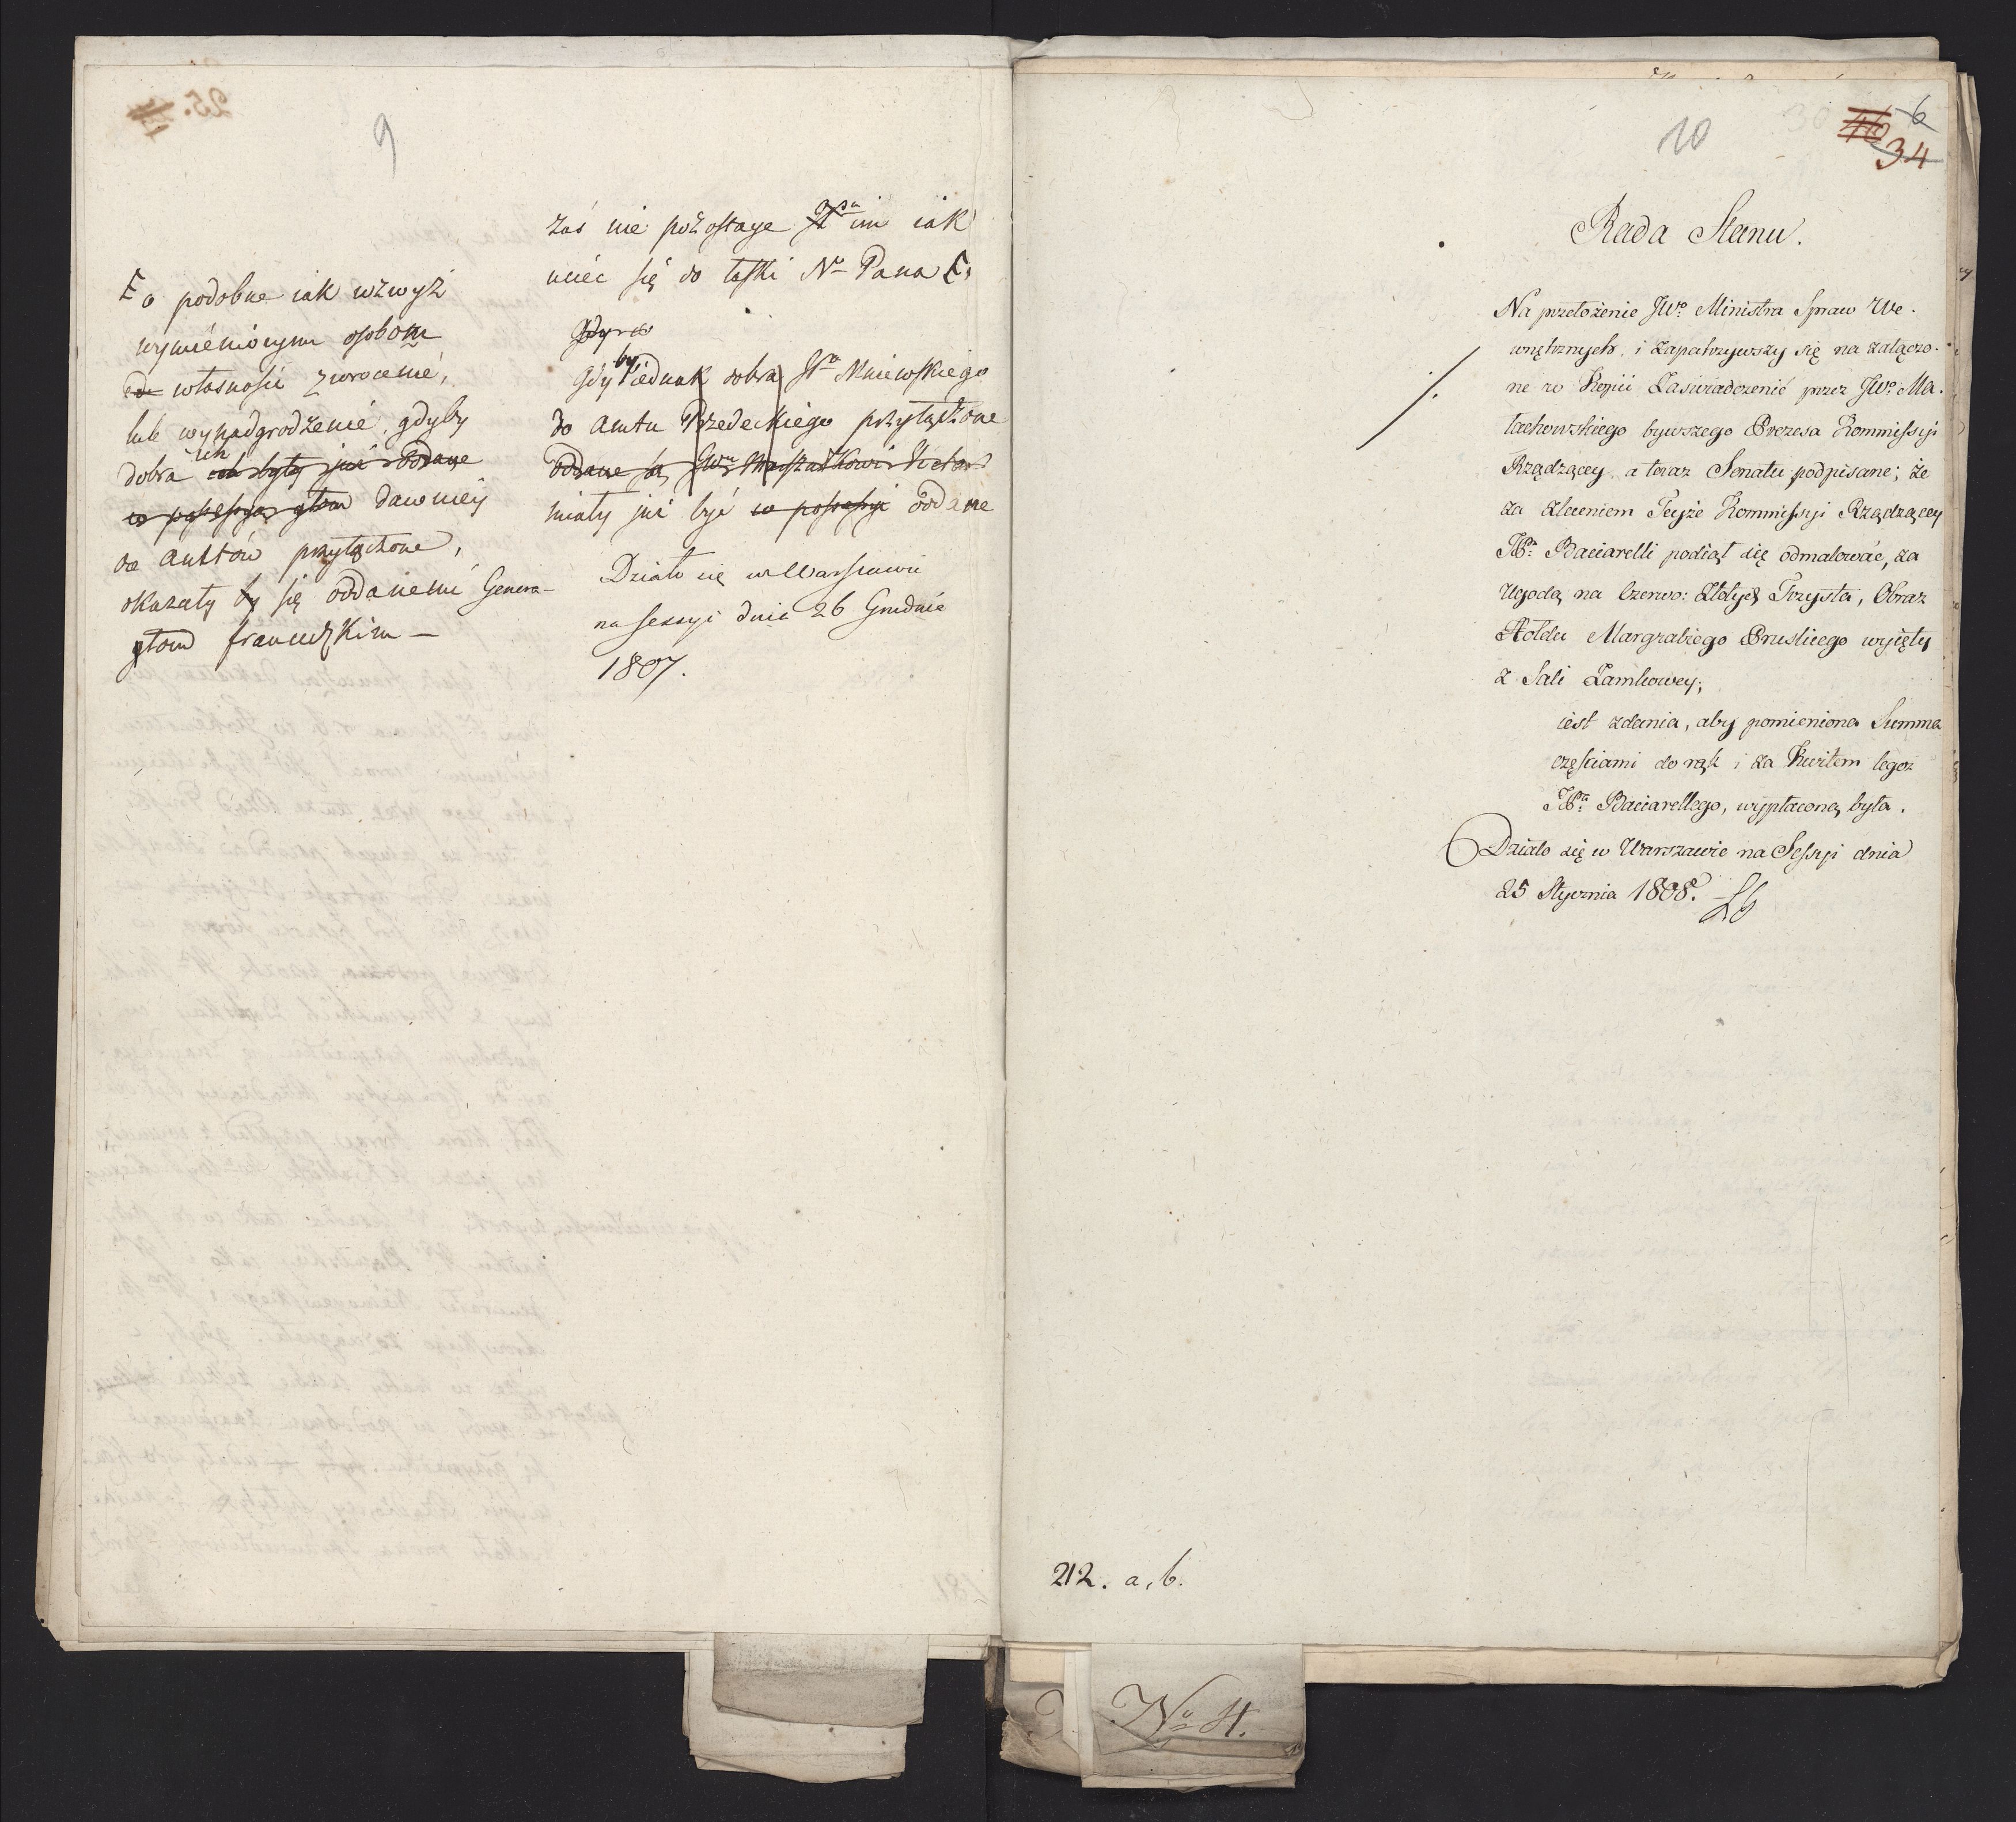 9
Ⅎ o podobne iak wzwyż
wymienionym osobom
własności zwrocenie,
lub wynadgrodzenie, gdyby
dobra ich były iuż oddane
dawniey
do amtów przyłączone,
okazały się oddanemi Genera-
łom francuzkim —
zaś nie pozostaye im iak
uciec się do łaski No Pana
Gdyby iednak dobra Jgo Mniewskiego
do Amtu Przedeckiego przyłączone
oddane są
miały iuż być w possessyi oddane
Działo się w Warszawie
na sessyi dnia 26 Grudnia
1807.
10
6
34
Rada Stanu.
Na przełożenie JWo Ministra Spraw We-
wnętrznych, i zapatrzywszy się na załączo-
ne w Kopii Zaświadczenie przez JWo Ma-
łachowskiego bywszego Prezesa Kommissyi
Rządzącey, a teraz Senatu podpisane; że
za zleceniem Teyże Kommissyi Rządzącey
JPn Baciarelli podiął się odmalować, za
Ugodą na Czerwo: Złotych Trzysta, Obraz
Hołdu Margrabiego Pruskiego wyięty
z Sali Zamkowey;
iest zdania, aby pomieniona Summa
częściami do rąk i za Kwitem tegoż
JPa Baciarellego, wypłaconą była.
Działo się w Warszawie na Sessyi dnia
25 Stycznia 1808.
212. a, b.
No 4.